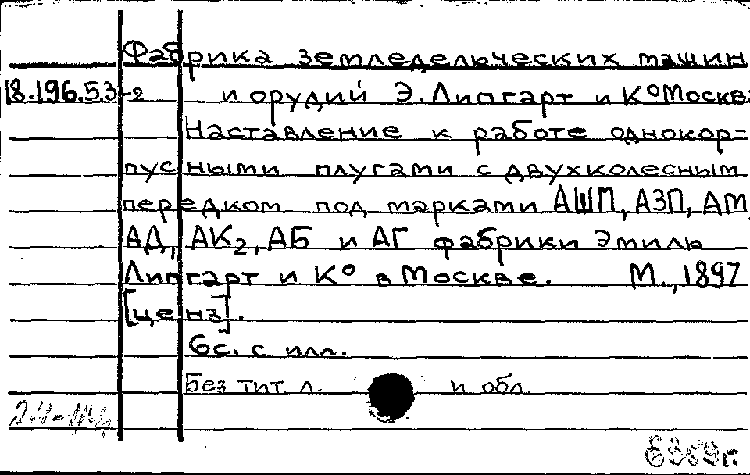 Фабрика земледельческих машин
18.196.53-2 и орудий Э. Липгарт и К° Москва
Наставление к работе однокор-
пусными плугами с двухколесным
передком под марками АШП, АЗП, АМ,
АД, АК2, АБ и АГ фабрики Эмиль
Липгарт и К° в Москве. М., 1897
[ценз].
6с. с илл.
Без тит. л. и обл.